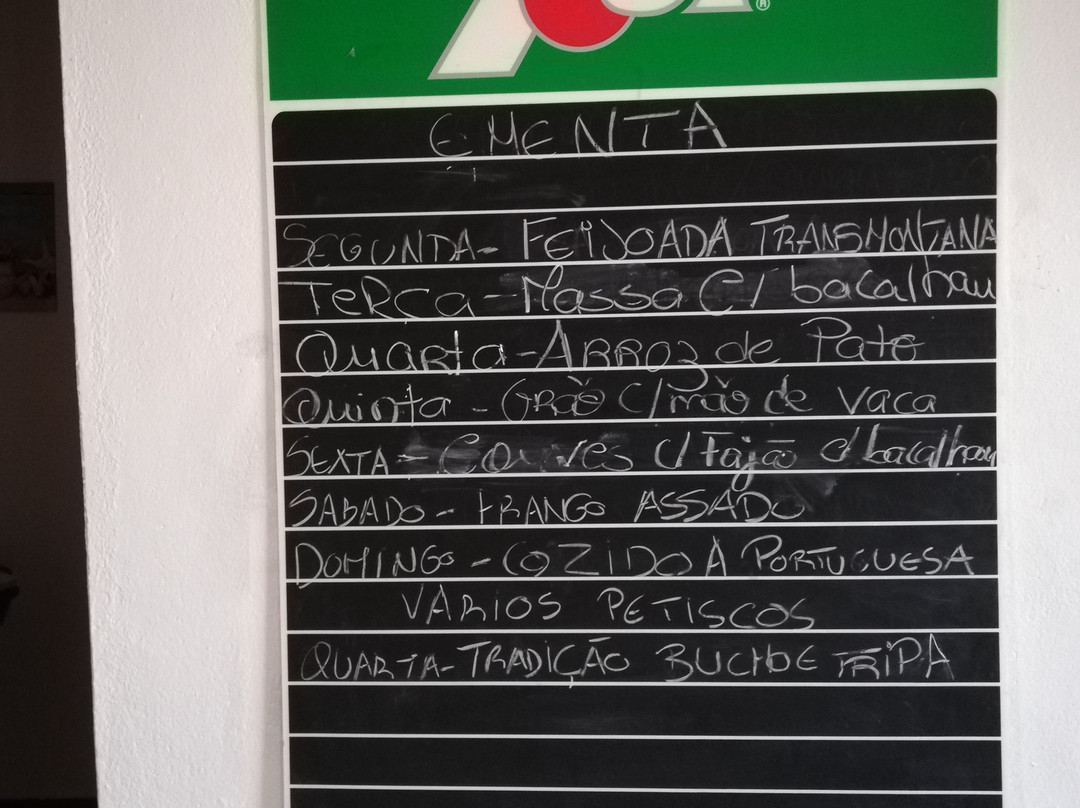 ®
EMENTA
SEGUNDA- FEIJOADA TRANSMONTANA
TeRça-Massa C/ bacalhau
Quarta-ARROz de Pato
Quinta - Grão C/mão de vaca
SEXTA- Couves c/ Fajão c/ bacalhau
SABADO- FRANGO ASSADO
DOMINGO - COZIDO À PORTUGUESA
VÁRIOS PETISCOS
QUARTA-TRADIÇÃO TRIPA